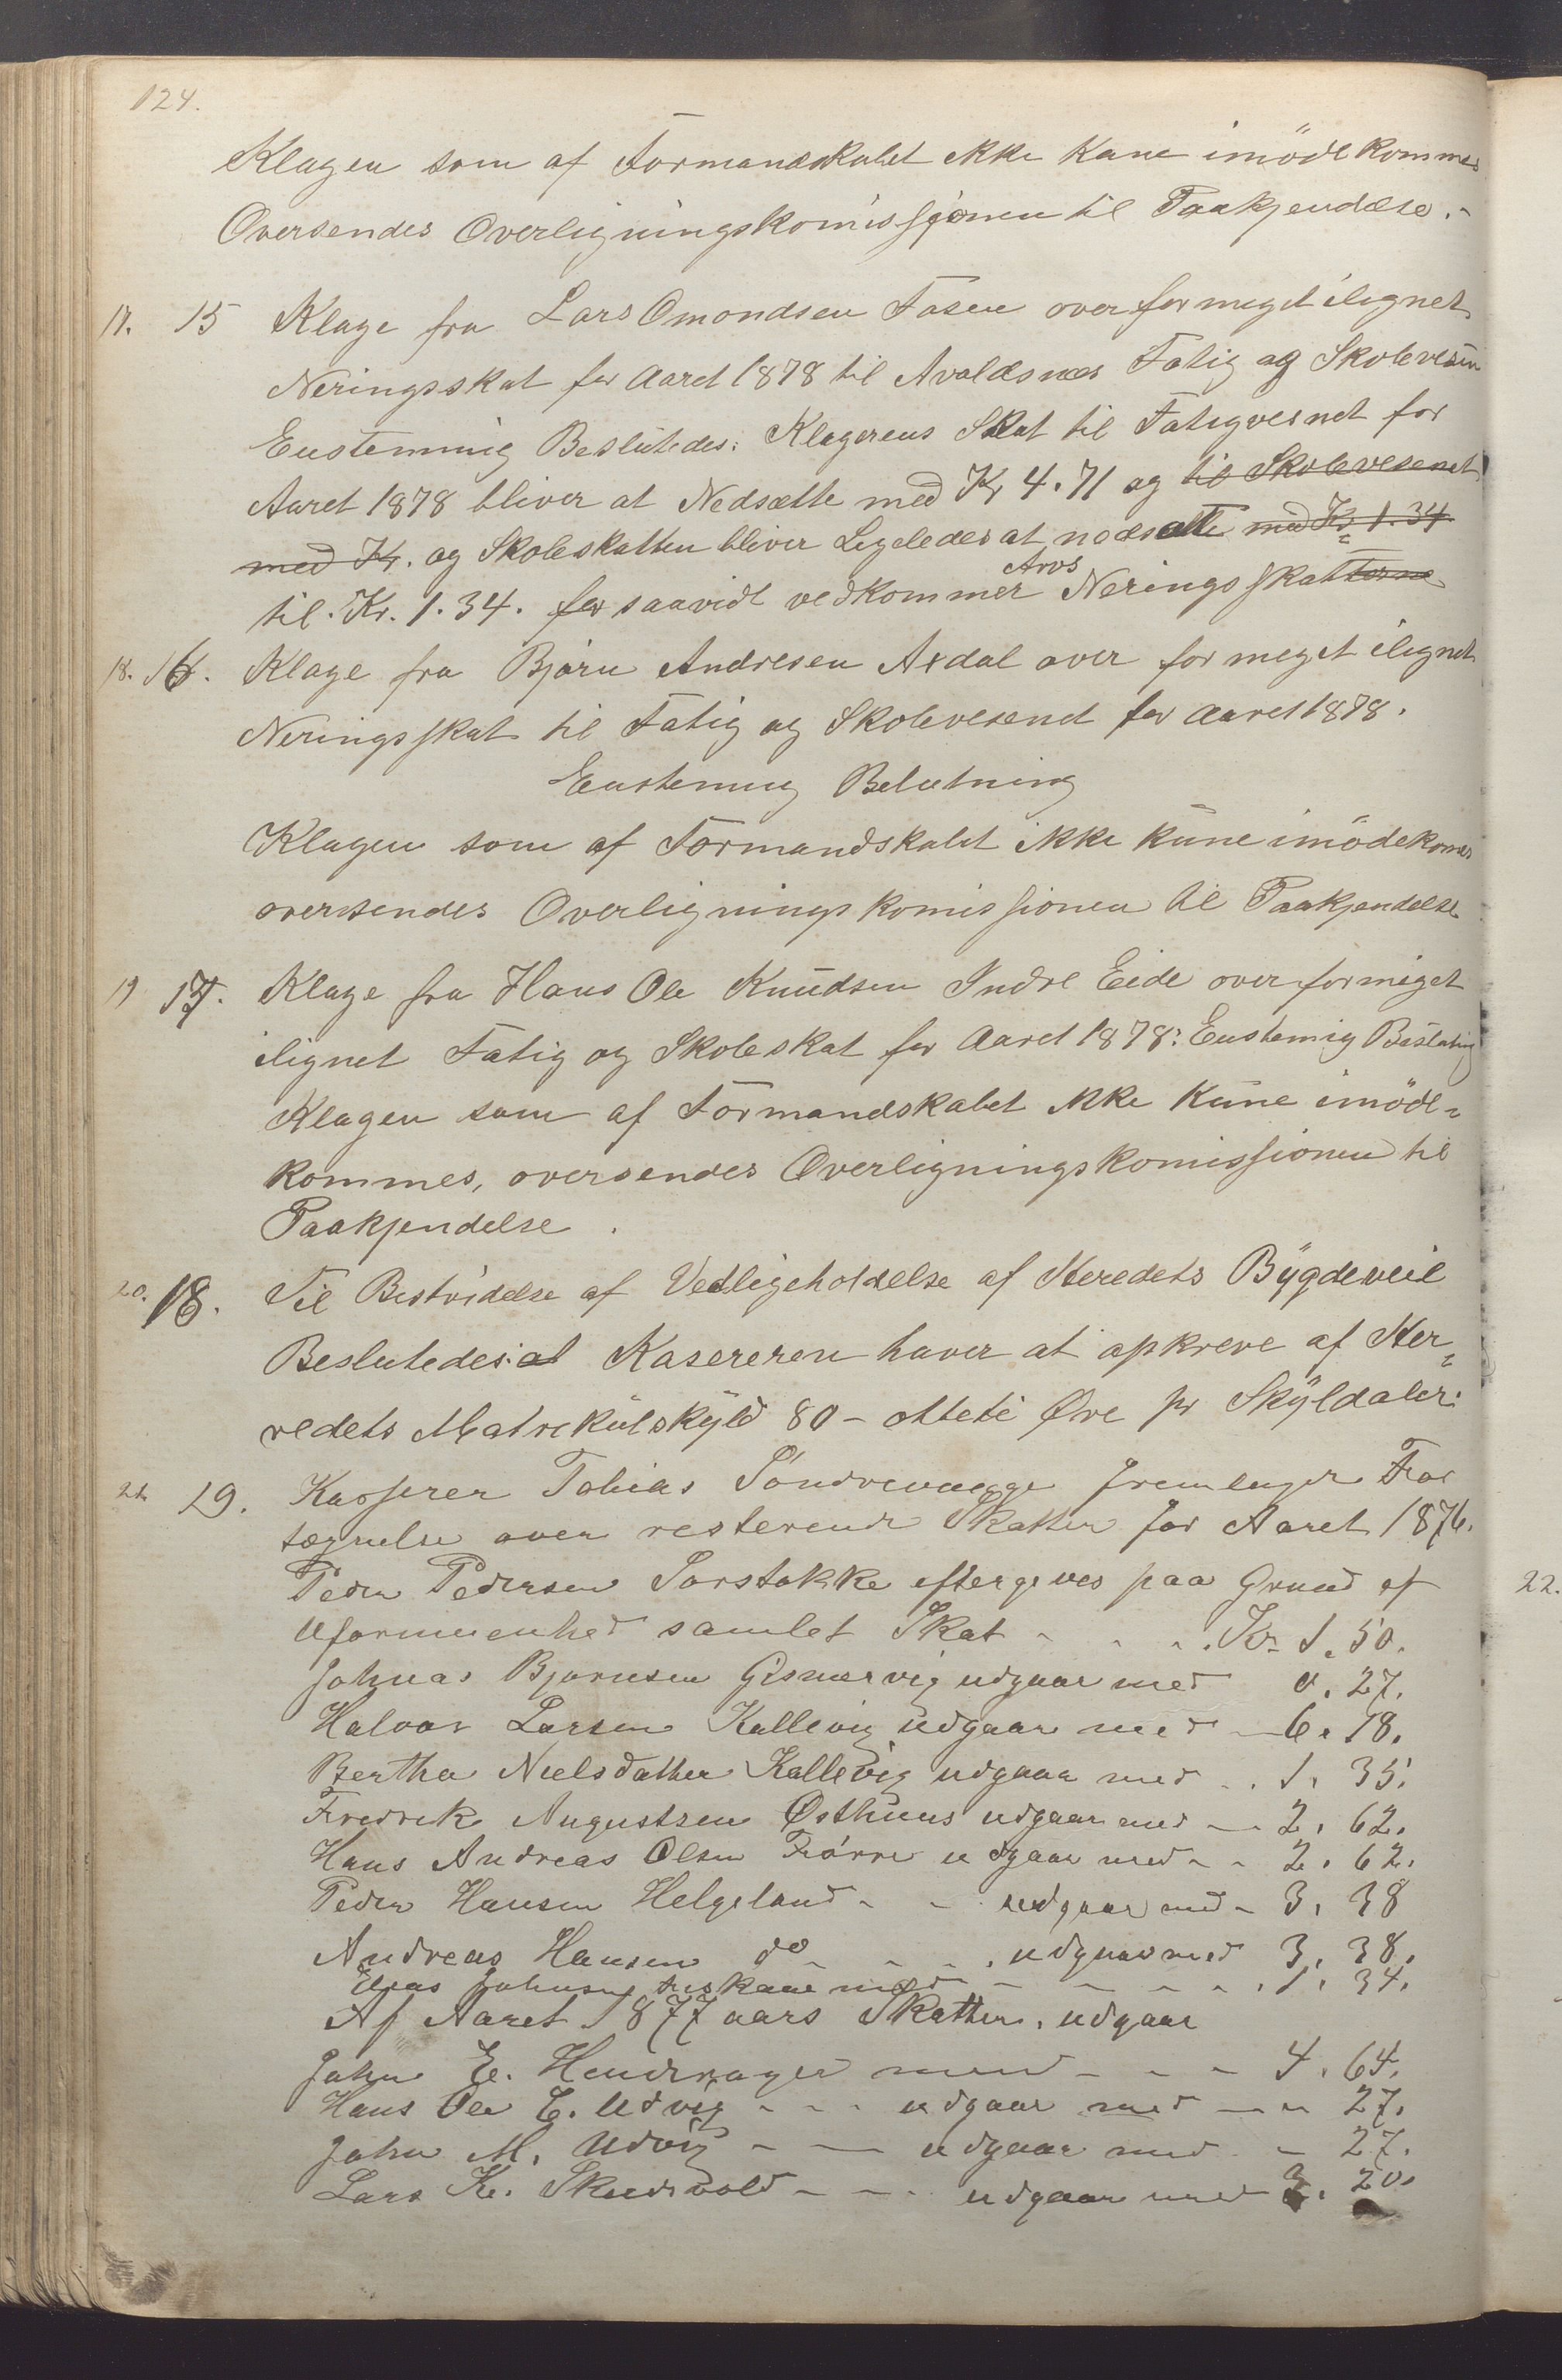 124.
Klagen som af Formandskabet ikke kune imödekommes
Oversendes Overligningskomissjonen til Paakjendelse.-
17. 15 Klage fra Lars Omondsen Fosen over for meget ilignet
Neringsskat for Aaret 1878 til Avaldsnes Fatig og Skolevesen
Eenstemmig Beslütedes: Klagerens Skat til Fatigvesnet for
Aaret 1878 bliver at Nedsætte med Kr 4.71 og til Skolevesenet
med Kr. og Skoleskatten bliver Ligeledes at nedsætte med Kr 1.34
til Kr. 1.34. for saavidt vedkommer Neringsskatterne
18. 16. Klage fra Bjørn Andresen Axdal over for meget ilignet
Neringsskat til Fatig og Skolevesenet for Aaret 1878.
Eenstemmig Belutning
Klagen som af Formandskabet ikke kune imödekomes
oversendes Overligningskomissionen til Paakjendelse
19 17. Klage fra Hans Ole Knudsen Indre Eide over for meget
ilignet Fatig og Skoleskat for Aaret 1878: Eenstemig Beslutnig
Klagen som af Formandskabet ikke kune imöde-
kommes, oversendes Overligningskomissionen til
Paakjendelse.
20. 18. Til Bestridelse af Vedligeholdelse af Heredets Bygdeveie
Beslutedes: at Kasereren haver at opkreve af Her-
redets Matrikülskyld 80 - otteti Øre pr Skyldaler:
21. 19. Kasserer Tobias Søndrevaagge fremlagde For
tegnelse over resterende Skatter for Aaret 1876.
Peder Pedersen Sorstokke eftergives paa Grund af
Uformuenhed samlet Skat - - - Kr 1.50.
Johnas Bjørnsen Gismervig udgaar med 0.27.
Halvor Larsen Kallevig udgaar med - 6.18.
Bertha Nielsdatter Kallevig udgaar med - . 1.35.
Fredrik Augustsen Østhuus udgaar med - 2.62.
Hans Andreas Olsen Førre udgaar med - - 2.62.
Peder Hansen Helgeland - - udgaar med - 3.38
Andreas Hansen do - - - udgaar med 3.38.
Elias Johnsen med - - - - - 1.34.
Af Aaret 1877 aars Skatter. udgaar
John E. med - - - 4.64.
Hans Ole E. Udvig - - - udgaar med - " 27.
John M. Udvig - - udgaar med - 27.
Lars K. Skeidsvold - - - udgaar med 3.20.
22.